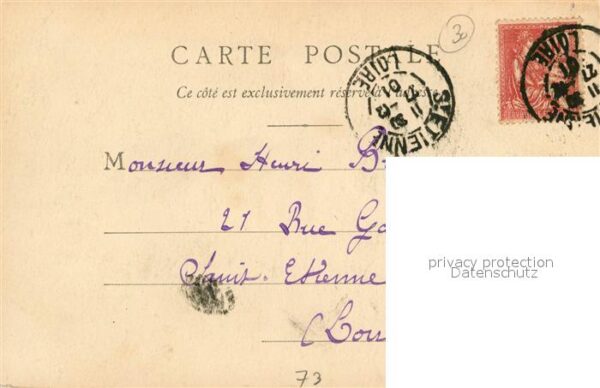 30
CARTE POSTALE
Ce côté est exclusivement réservé à l'adresse
ST ETIENNE
LOIRE
ST ETIENNE
LOIRE
Monsieur Henri B
21 Rue Ga
Saint-Etienne
(Loi
privacy protection
Datenschutz
73